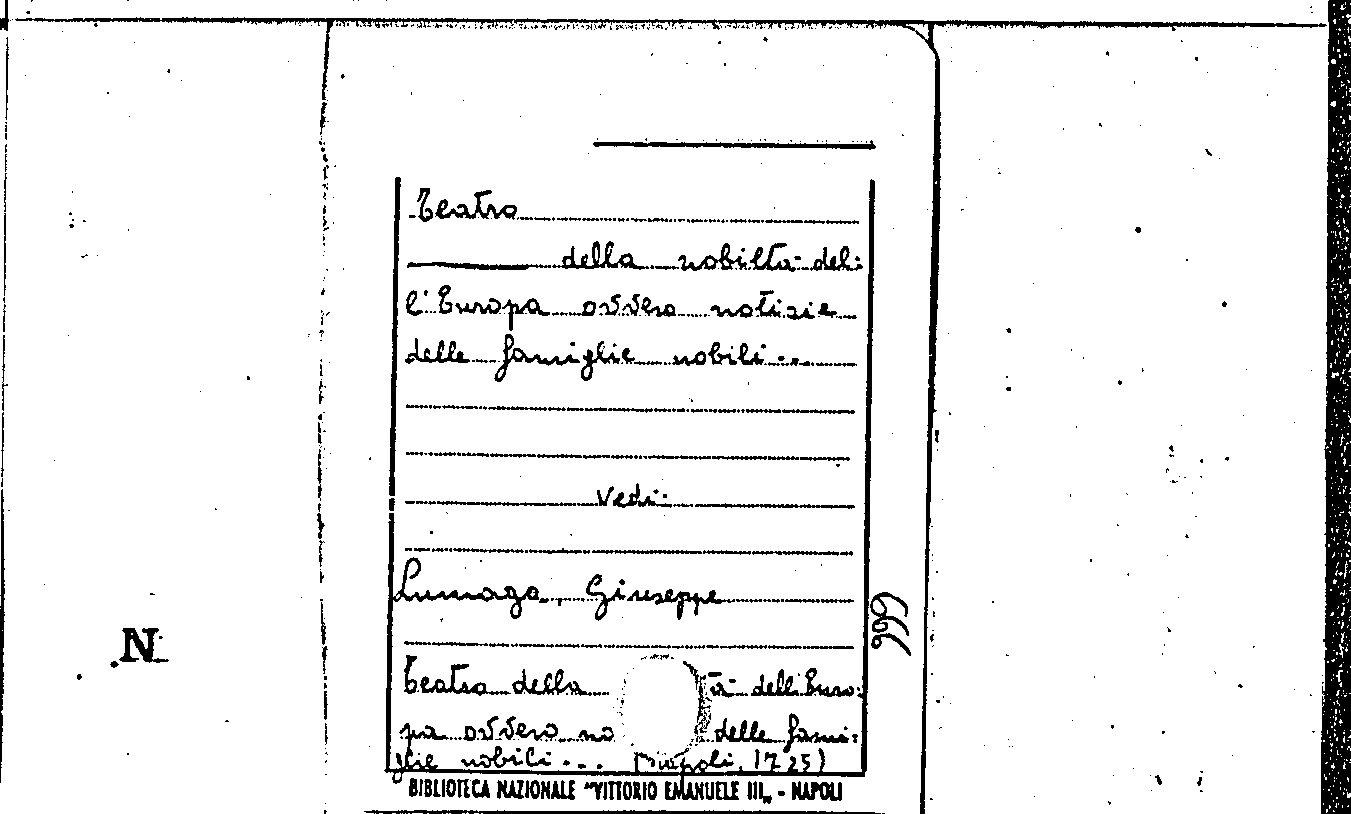 Teatro
della nobiltà del:
l'Europa ovvero notizie
delle famiglie nobili...
Vedi:
Lumaga, Giuseppe
666
Teatro della tà dell'Euro:
pa ovvero no delle fami:
glie nobili... (Napoli, 1725)
BIBLIOTECA NAZIONALE "VITTORIO EMANUELE III„ - NAPOLI
N